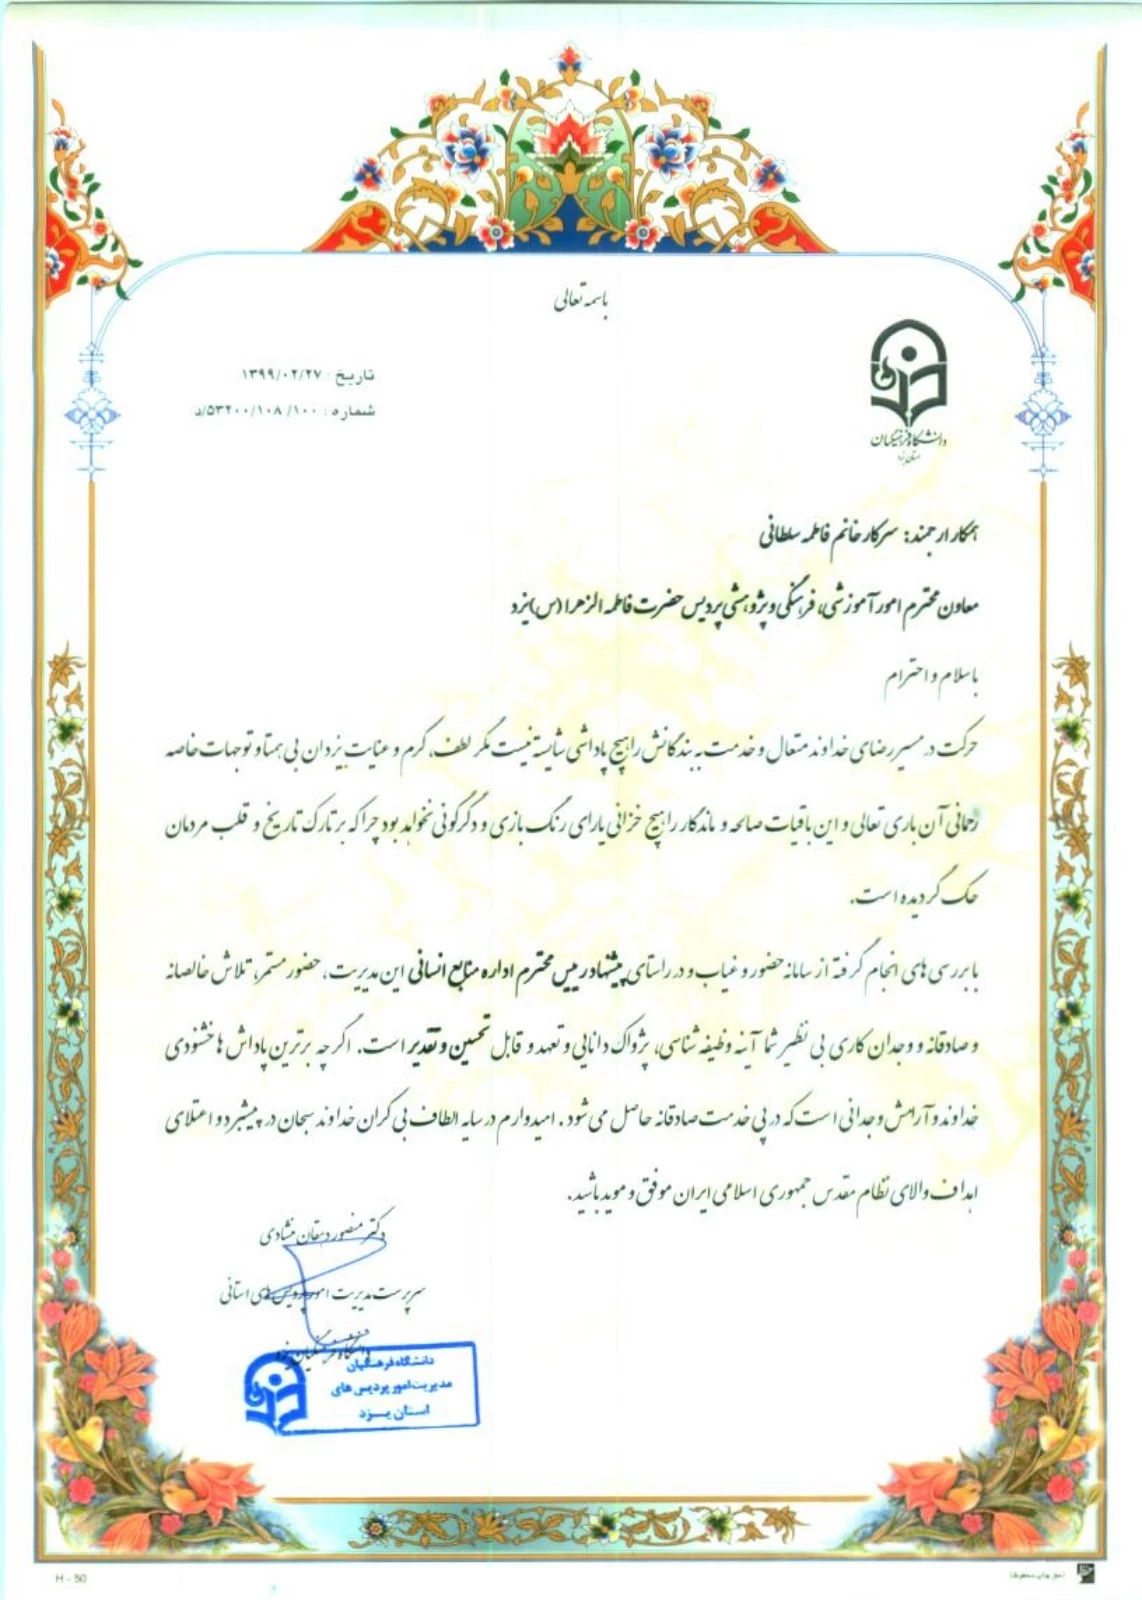 باسمه تعالی
تاریخ : ۱۳۹۹/۰۲/۲۷
شماره : ۵۳۲۰۰/۱۰۸/۱۰۰/د
دانشگاه فرهنگیان
استان یزد
همکار ارجمند: سرکار خانم فاطمه سلطانی
معاون محترم امور آموزشی، فرهنگی و پژوهشی پردیس حضرت فاطمه الزهرا (س) یزد
با سلام و احترام
حرکت در مسیر رضای خداوند متعال و خدمت به بندگانش را هیچ پاداشی شایسته نیست مگر لطف، کرم و عنایت یزدان بی همتا و توجهات خاصه
رحمانی آن باری تعالی و این باقیات صالحه و ماندگار را هیچ خزانی یارای رنگ بازی و دگرگونی نخواهد بود چرا که بر تارک تاریخ و قلب مردمان
حک گردیده است.
با بررسی های انجام گرفته از سامانه حضور و غیاب و در راستای پیشنهاد رییس محترم اداره منابع انسانی این مدیریت، حضور مستمر، تلاش خالصانه
و صادقانه و وجدان کاری بی نظیر شما آینه وظیفه شناسی، پژواک دانایی و تعهد و قابل تحسین و تقدیر است. اگر چه برترین پاداش ها خشنودی
خداوند و آرامش وجدانی است که در پی خدمت صادقانه حاصل می شود. امیدوارم در سایه الطاف بی کران خداوند سبحان در پیشبرد و اعتلای
اهداف والای نظام مقدس جمهوری اسلامی ایران موفق و موید باشید.
دکتر منصور دهقان منشادی
سرپرست مدیریت امور پردیس های استانی
دانشگاه فرهنگیان یزد
دانشگاه فرهنگیان
مدیریت امور پردیس های
استان یزد
H - 50